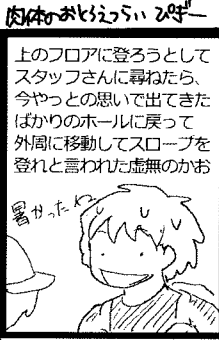 肉体のおとろえつらい ぴぎー
上のフロアに登ろうとして
スタッフさんに尋ねたら、
今やっとの思いで出てきた
ばかりのホールに戻って
外周に移動してスロープを
登れと言われた虚無のかお
暑かったね